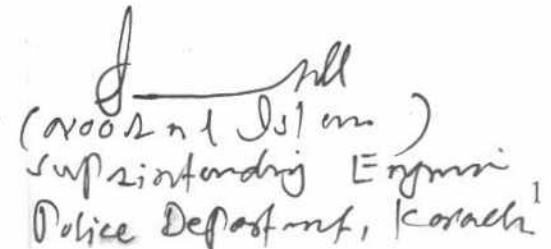 (Noorul Islam)
Superintending Engineer
Police Department, Karachi
1